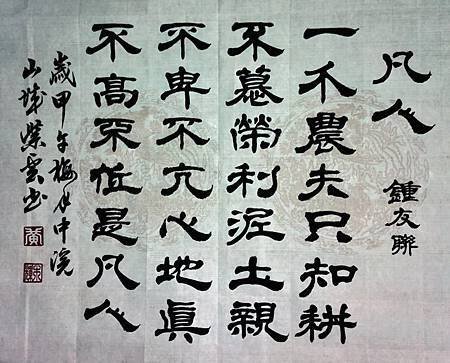 凡人
鍾友聯
一介農夫只知耕
不慕榮利泥土親
不卑不亢心地眞
不高不低是凡人
歲甲午梅月中浣
山城紫雲書